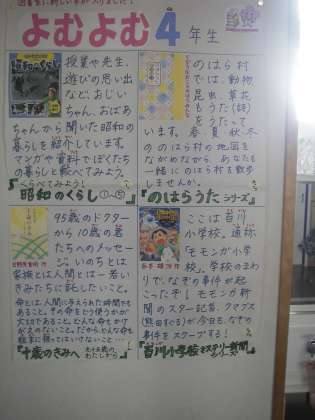 図書室に新しい本が入りました!
よむよむ4年生
授業や先生、
遊びの思い出
など、おじい
ちゃん、おばあ
ちゃんから聞いた昭和の
暮らしを紹介しています。
マンガや資料でぼくたち
の暮らしと較べてみよう。
くらべてみよう!
『昭和のくらし』①~⑤
のはら村
では、動物
昆虫、草花
もうた(詩)
をうたって
います。春、夏、秋、冬
ののはら村の地図を
ながめながら、あなたも
一緒にのはら村を散歩
しませんか。
『のはらうた』シリーズ
95歳のドクター
から10歳の君
たちへのメッセー
ジ。いのちとは
家族とは人間とは…若い
きみたちに託したいこと。
命とは、人間に与えられた時間でも
あること。その命をどう使うかが
大切であること。どんな命もかけ
がえのないこと。だから、どんな命も
粗末に扱ってはいけないこと…
『十歳のきみへ』九十五歳のわたしから
日野原重明 作
ここは首川
小学校。通称
「モモンガ小学
校」。学校のまわ
りで、なぞの事件が起
こったぞ!モモンガ新
聞のスター記者、クマグス
(熊田すぐる)が今日も、なぞの
事件をスクープする!
『首川小学校ミステリー新聞』シリーズ